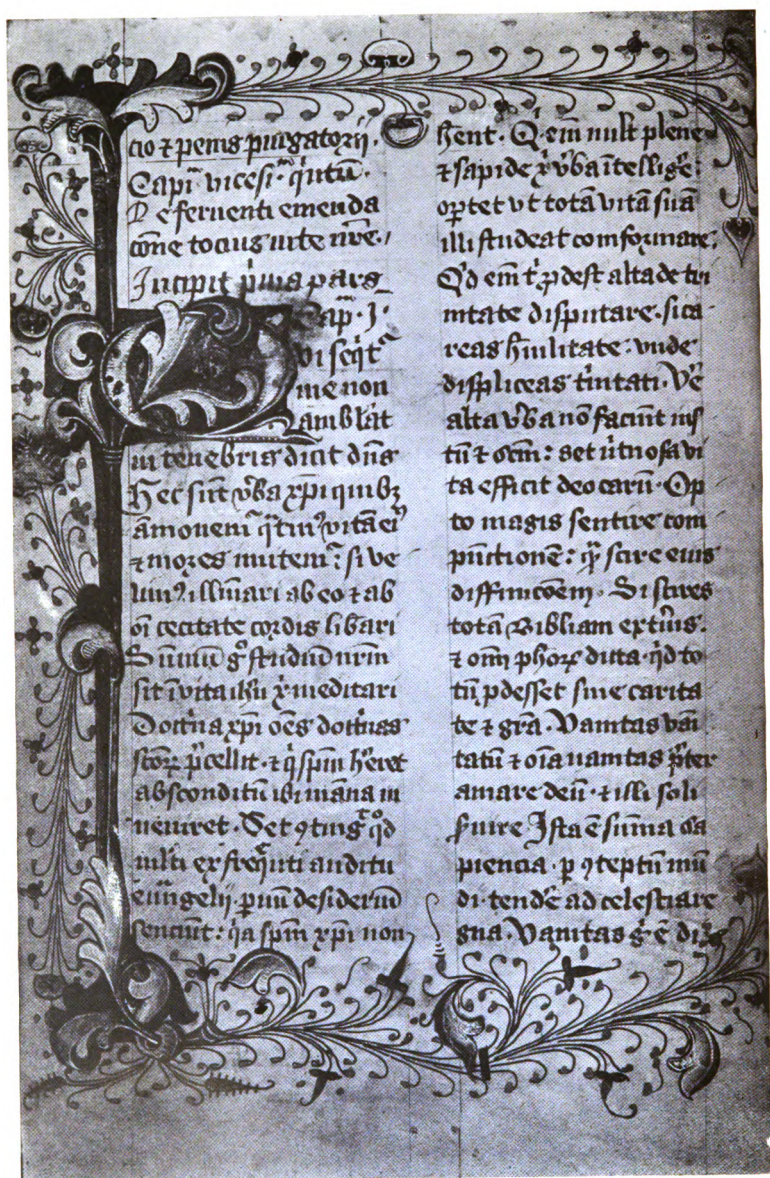 cio ⁊ penis purgatorij.
Capm̄ vicesim̄ q̇ntū.
De feruenti emenda
cōne tocius uite nr̄e.
Incipit p̄ma pars
Capm̄. I.
Qvi seq̇t᷑
me non
ambl̄at
in tenebris dicit dn̄s
Hec sūt v̄ba xp̄i quibꝫ
amonem᷑ q̄tin᷒ vitā ei᷒
⁊ mores imitem᷑: si ve
lim᷒ illūinari ab eo ⁊ ab
oī cecitate cordis lib̄ari
Sūmū g̊ studiū nr̄m
sit ī vita ih̄u x̄ meditari
Doct̓na xp̄i oēs doct̓nas
sc̄orꝫ p̄cellit. ⁊ q̇ sp̄m h̄eret
absconditū ibi māna in
ueniret. Set ꝯting̓ qd̊
ml̓ti ex freq̄nti auditu
eūngelij. ꝑuū desideriū
senciūt: q̇a sp̄m xp̄i non
h̄ent. Q̇ em̄ nult plene
⁊ sapide x̄ v̄ba ītellig̓e:
oꝑtet vt totā vitā suā
illi studeat comformare:
Qd̓ em̄ t̓ ꝓdest alta de tri
nitate disputare. si ca
reas hūilitate. vnde
displiceas t̓nitati. Ve̓
alta v̄ba nō faciūt ius
tū ⁊ sc̄m: set v̓tuosa vi
ta efficit deo carū. Op
to magis sentire com
pūctionē: q̄ꝫ scire eius
diffinicōem. Si scires
totā Bibliam exteri᷒.
⁊ om̄ pho᷒rꝫ dicta. q̇d to
tū ꝓdesset sine carita
te ⁊ grā. Vanitas vāi
tatū ⁊ oīa uanitas p̄ter
amare deū. ⁊ illi soli
s̓uire. Ista ē sūma sa
piencia. ꝑ ꝯteptū mū
di. tend̓e ad celestia re
gna. Vanitas g̊ ē diu̓s